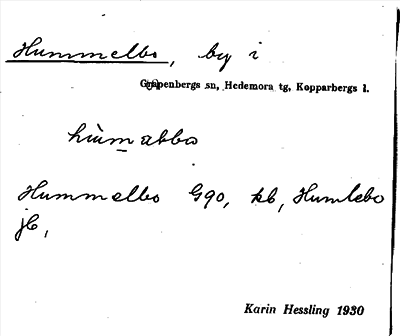 Hummelbo, by i
Garpenbergs sn, Hedemora tg, Kopparbergs l.
hùmabbo
Hummelbo G90, kb, Humlebo
jb,
Karin Hessling 1930